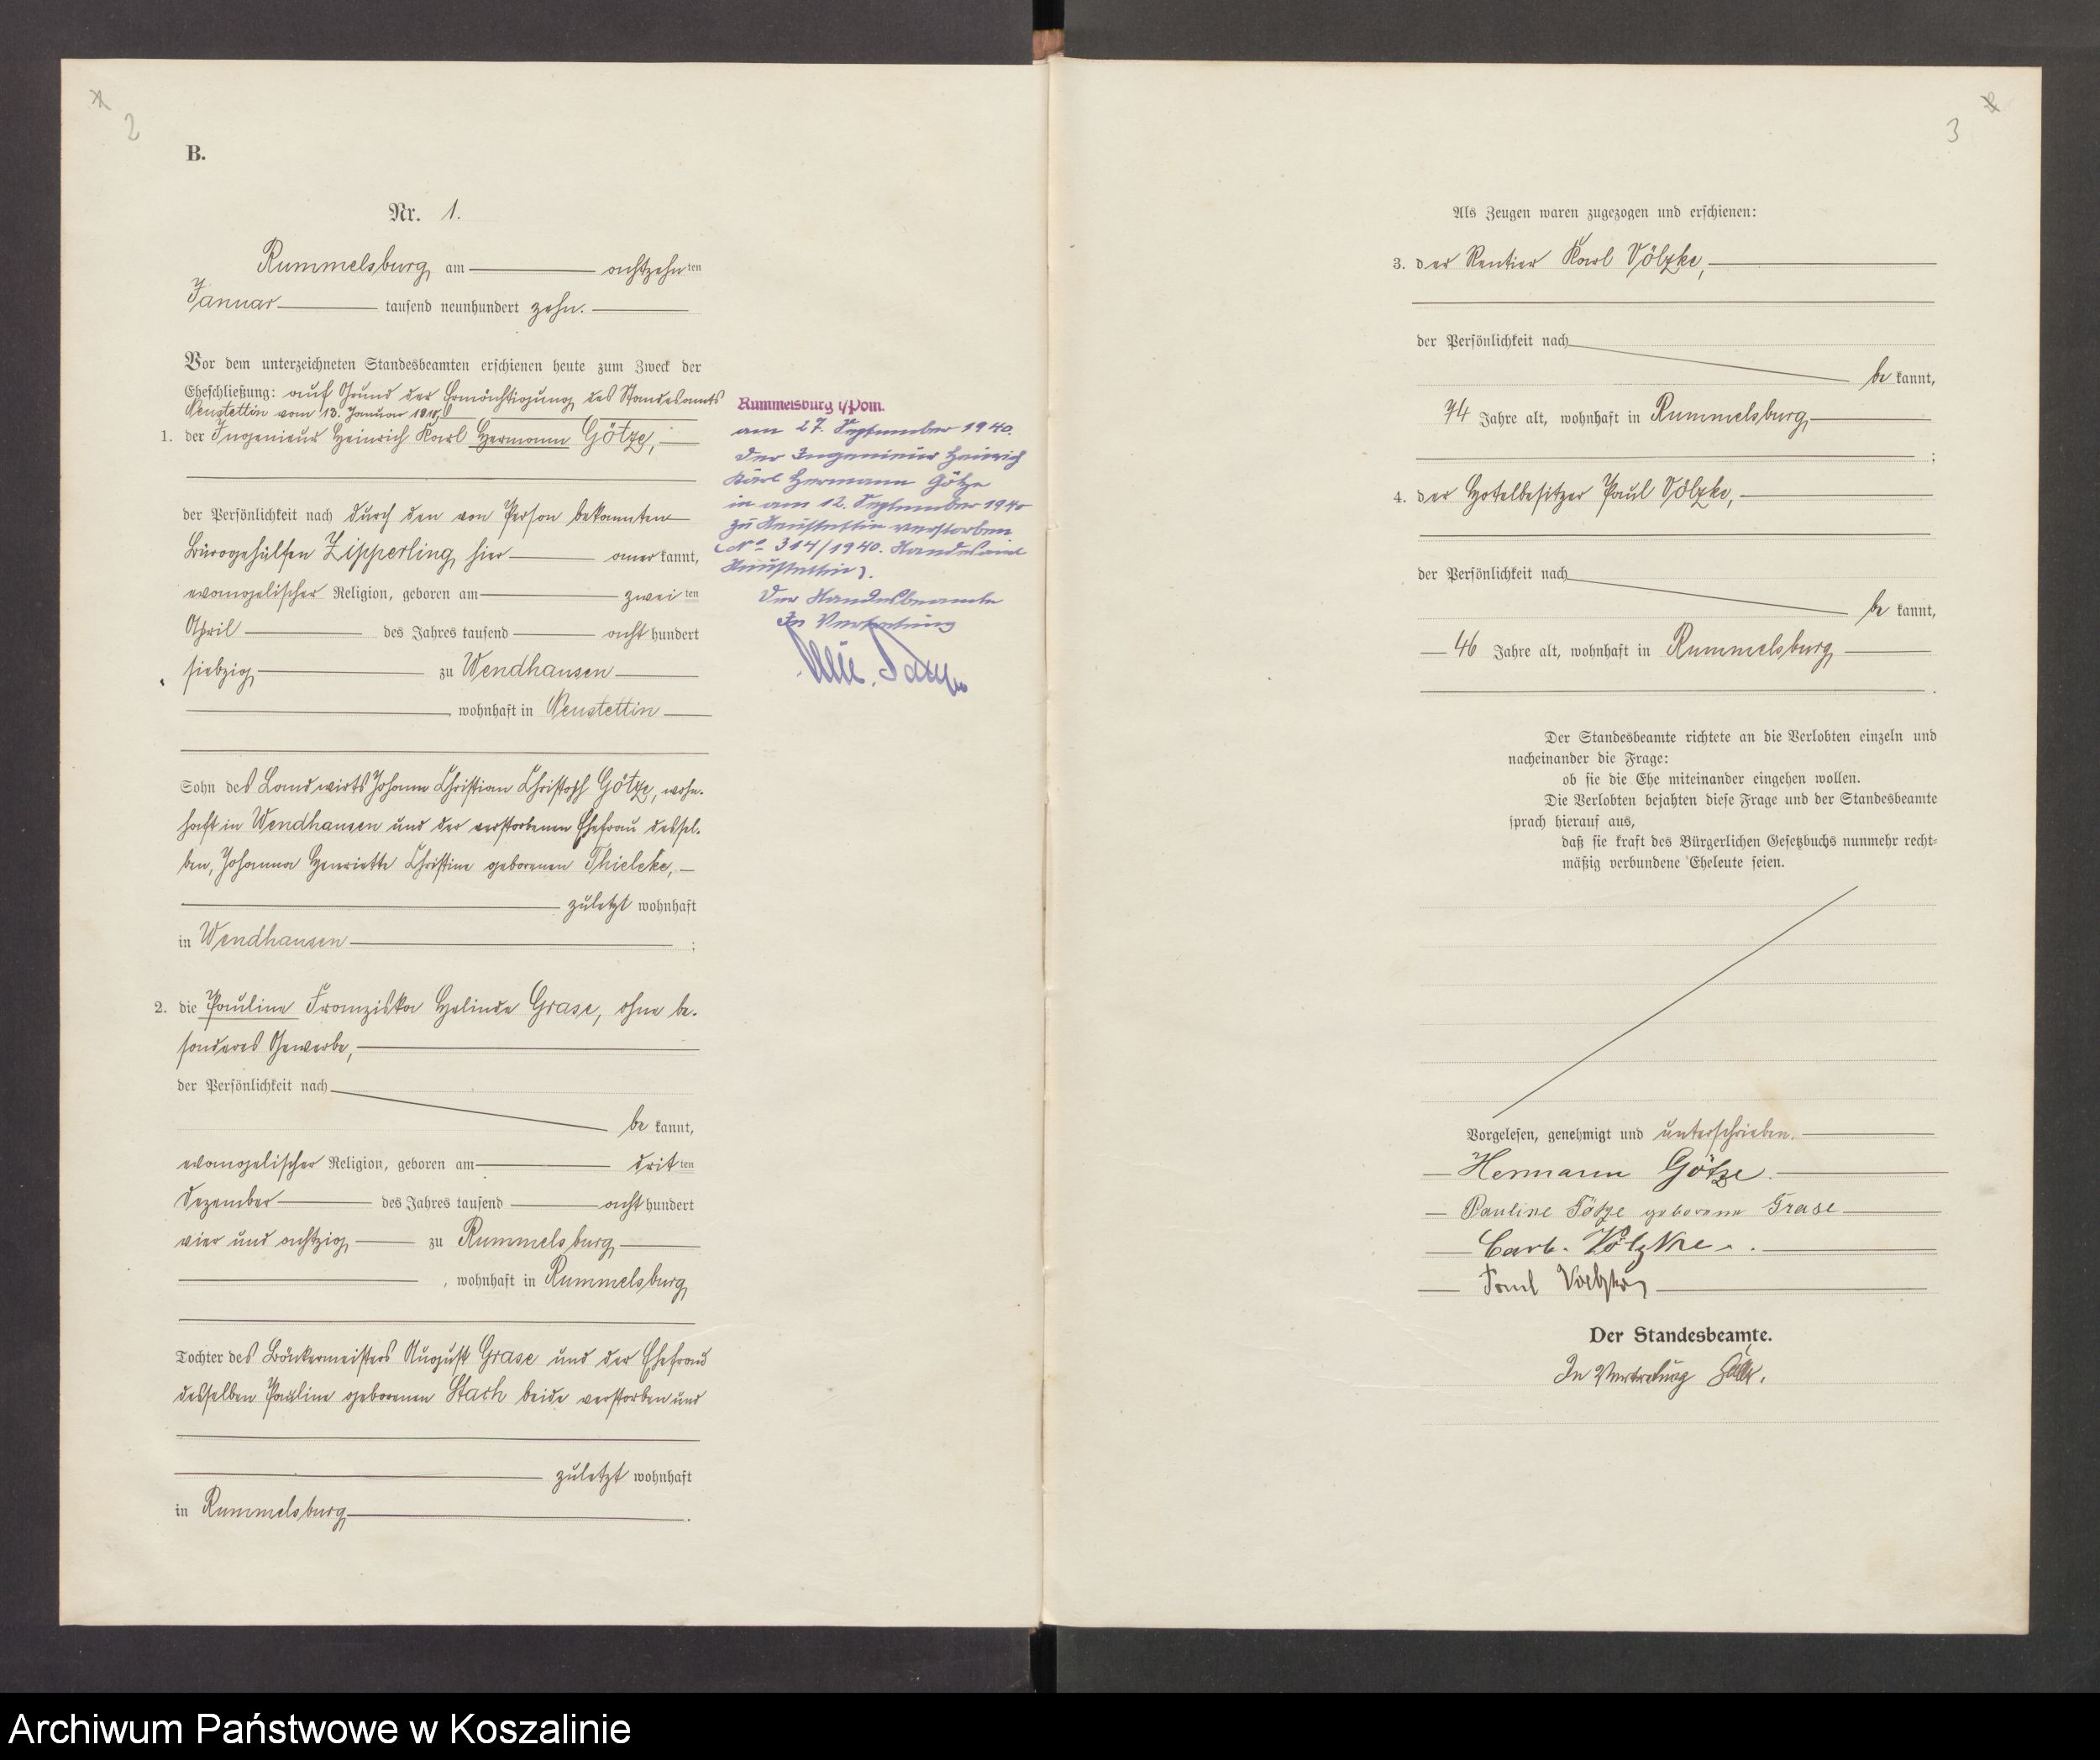 2
B.
Nr. 1.
Rummelsburg am achtzehnten
Januar tausend neunhundert zehn.
Vor dem unterzeichneten Standesbeamten erschienen heute zum Zweck der
Eheschließung: auf Grund der Ermächtigung des Standesamts
Neustettin vom 13. Januar 1910,
1. der Ingenieur Heinrich Karl Hermann Götze,
der Persönlichkeit nach durch den von Person bekannten
Bürogehülfen Zipperling hier anerkannt,
evangelischer Religion, geboren am zweiten
April des Jahres tausend achthundert
siebzig zu Wendhausen
, wohnhaft in Neustettin
Sohn des Landwirts Johann Christian Christoph Götze, wohn-
haft in Wendhausen und der verstorbenen Ehefrau dessel-
ben, Johanna Henriette Christine geborenen Thielcke,
zuletzt wohnhaft
in Wendhausen ;
2. die Pauline Franziska Helinde Grase, ohne be-
sonderes Gewerbe,
der Persönlichkeit nach
be kannt,
evangelischer Religion, geboren am dritten
Dezember des Jahres tausend achthundert
vier und achtzig zu Rummelsburg
, wohnhaft in Rummelsburg
Tochter des Böttchermeisters August Grase und der Ehefrau
desselben Pauline geborenen Stach beide verstorben und
zuletzt wohnhaft
in Rummelsburg .
Rummelsburg i/Pom.
am 27. September 1940.
Der Ingenieur Heinrich
Karl Hermann Götze
ist am 12. September 1940
zu Neustettin verstorben
(Nº 314/1940. Standesamt
Neustettin).
Der Standesbeamte
In Vertretung
3
Als Zeugen waren zugezogen und erschienen:
3. der Rentier Karl Völzke,
der Persönlichkeit nach
be kannt,
74 Jahre alt, wohnhaft in Rummelsburg
;
4. der Hotelbesitzer Paul Völzke,
der Persönlichkeit nach
be kannt,
46 Jahre alt, wohnhaft in Rummelsburg
.
Der Standesbeamte richtete an die Verlobten einzeln und
nacheinander die Frage:
ob sie die Ehe miteinander eingehen wollen.
Die Verlobten bejahten diese Frage und der Standesbeamte
sprach hierauf aus,
daß sie kraft des Bürgerlichen Gesetzbuchs nunmehr recht-
mäßig verbundene Eheleute seien.
Vorgelesen, genehmigt und unterschrieben.
Hermann Götze.
Pauline Götze geborene Grase
Carl Völzke.
Paul Voelzke
Der Standesbeamte.
In Vertretung
Archiwum Państwowe w Koszalinie